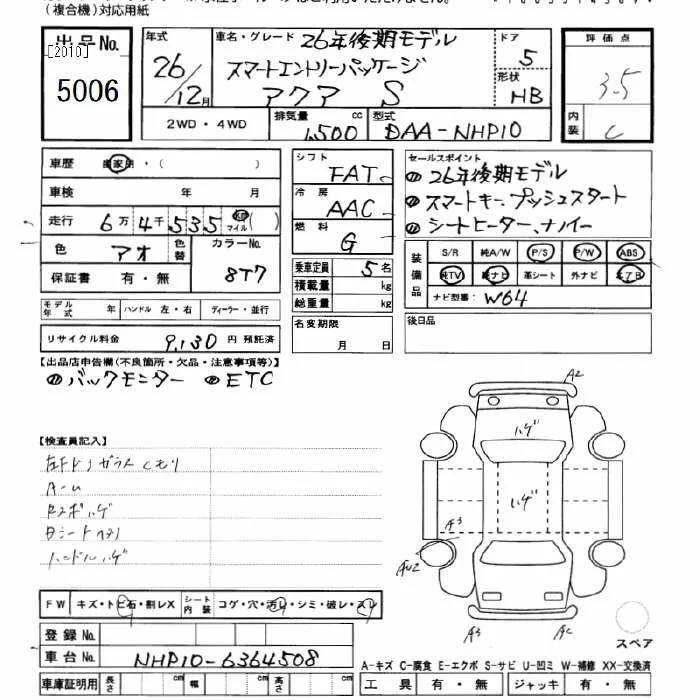 (複合機)対応用紙
出品No.
[2010]
5006
年式
26/12月
車名・グレード 26年後期モデル
スマートエントリーパッケージ
アクア S
ドア
5
形状
HB
評価点
3.5
内装
C
2WD・4WD
排気量
1,500 cc
型式
DAA-NHP10
車歴 自家用・( )
車検 年 月
走行 6万4千535 km マイル( )
色 アオ 色替 カラーNo. 8T7
保証書 有・無
モデル年式 年 ハンドル 左・右 ディーラー・並行
リサイクル料金 9,130円 預託済
シフト FAT
冷房 AAC
燃料 G
乗車定員 5名
積載量 kg
総重量 kg
名変期限
月 日
セールスポイント
26年後期モデル
スマートキー、プッシュスタート
シートヒーター、ナノイー
装備品
S/R 純A/W P/S P/W ABS
純TV 純ナビ 革シート 外ナビ エアB
ナビ型番: W64
後日品
【出品店申告欄(不良箇所・欠品・注意事項等)】
バックモニター ETC
【検査員記入】
ハンドルハゲ
FW キズ・トビ石・割レX シート内装 コゲ・穴・汚レ・シミ・破レ・スレ
登録No.
車台No. NHP10-6364508
車庫証明用 長さ cm 幅 cm 高さ cm
A2
ハゲ
ハゲ
A3
AU2
A3
AC
スペア
A-キズ C-腐食 E-エクボ S-サビ U-凹ミ W-補修 XX-交換済
工具 有・無 ジャッキ 有・無